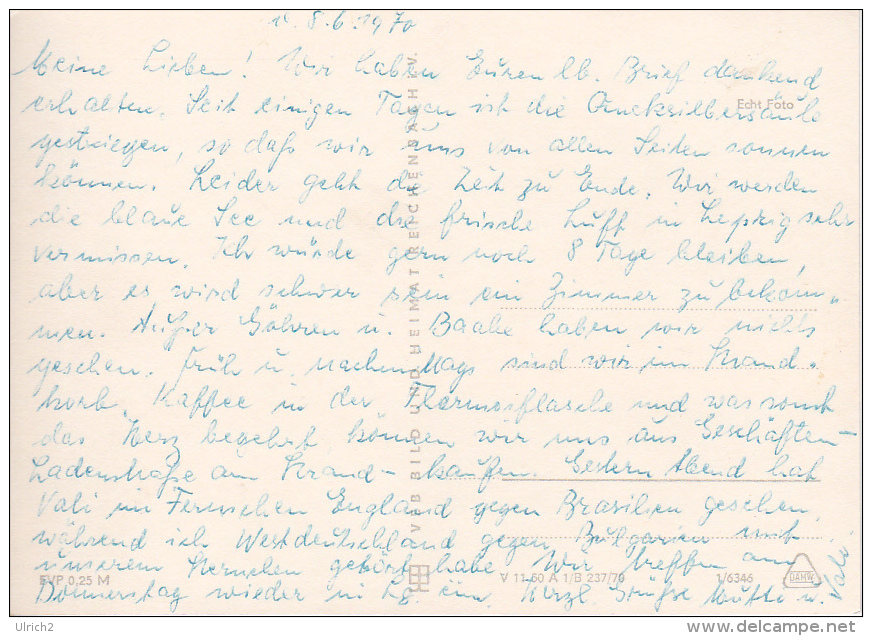 8.6.1970
Meine Lieben! Wir haben Euren lb. Brief dankend
erhalten. Seit einigen Tagen ist die Quecksilbersäule
gestiegen, so daß wir uns von allen Seiten sonnen
können. Leider geht die Zeit zu Ende. Wir werden
die blaue See und die frische Luft in Leipzig sehr
vermissen. Ich würde gern noch 8 Tage bleiben,
aber es wird schwer sein ein Zimmer zu bekom-
men. Außer Göhren u. Baabe haben wir nichts
gesehen. Früh u. nachmittags sind wir im Strand-
korb, Kaffee in der Thermosflasche und was sonst
das Herz begehrt können wir uns aus Geschäften-
Ladenstraße am Strand- kaufen. Gestern Abend hat
Vati im Fernsehen England gegen Brasilien gesehen,
während ich Westdeutschland gegen Bulgarien mit
unserem gehört habe. Wir treffen am
Donnerstag wieder in Lg. ein. Herzl. Grüße Mutti u. Vati
Echt Foto
VEB BILD UND HEIMAT REICHENBACH I. V.
EVP 0,25 M
V 11-50 A 1/B 237/70
1/6346
DAMW
Ulrich2
www.delcampe.net